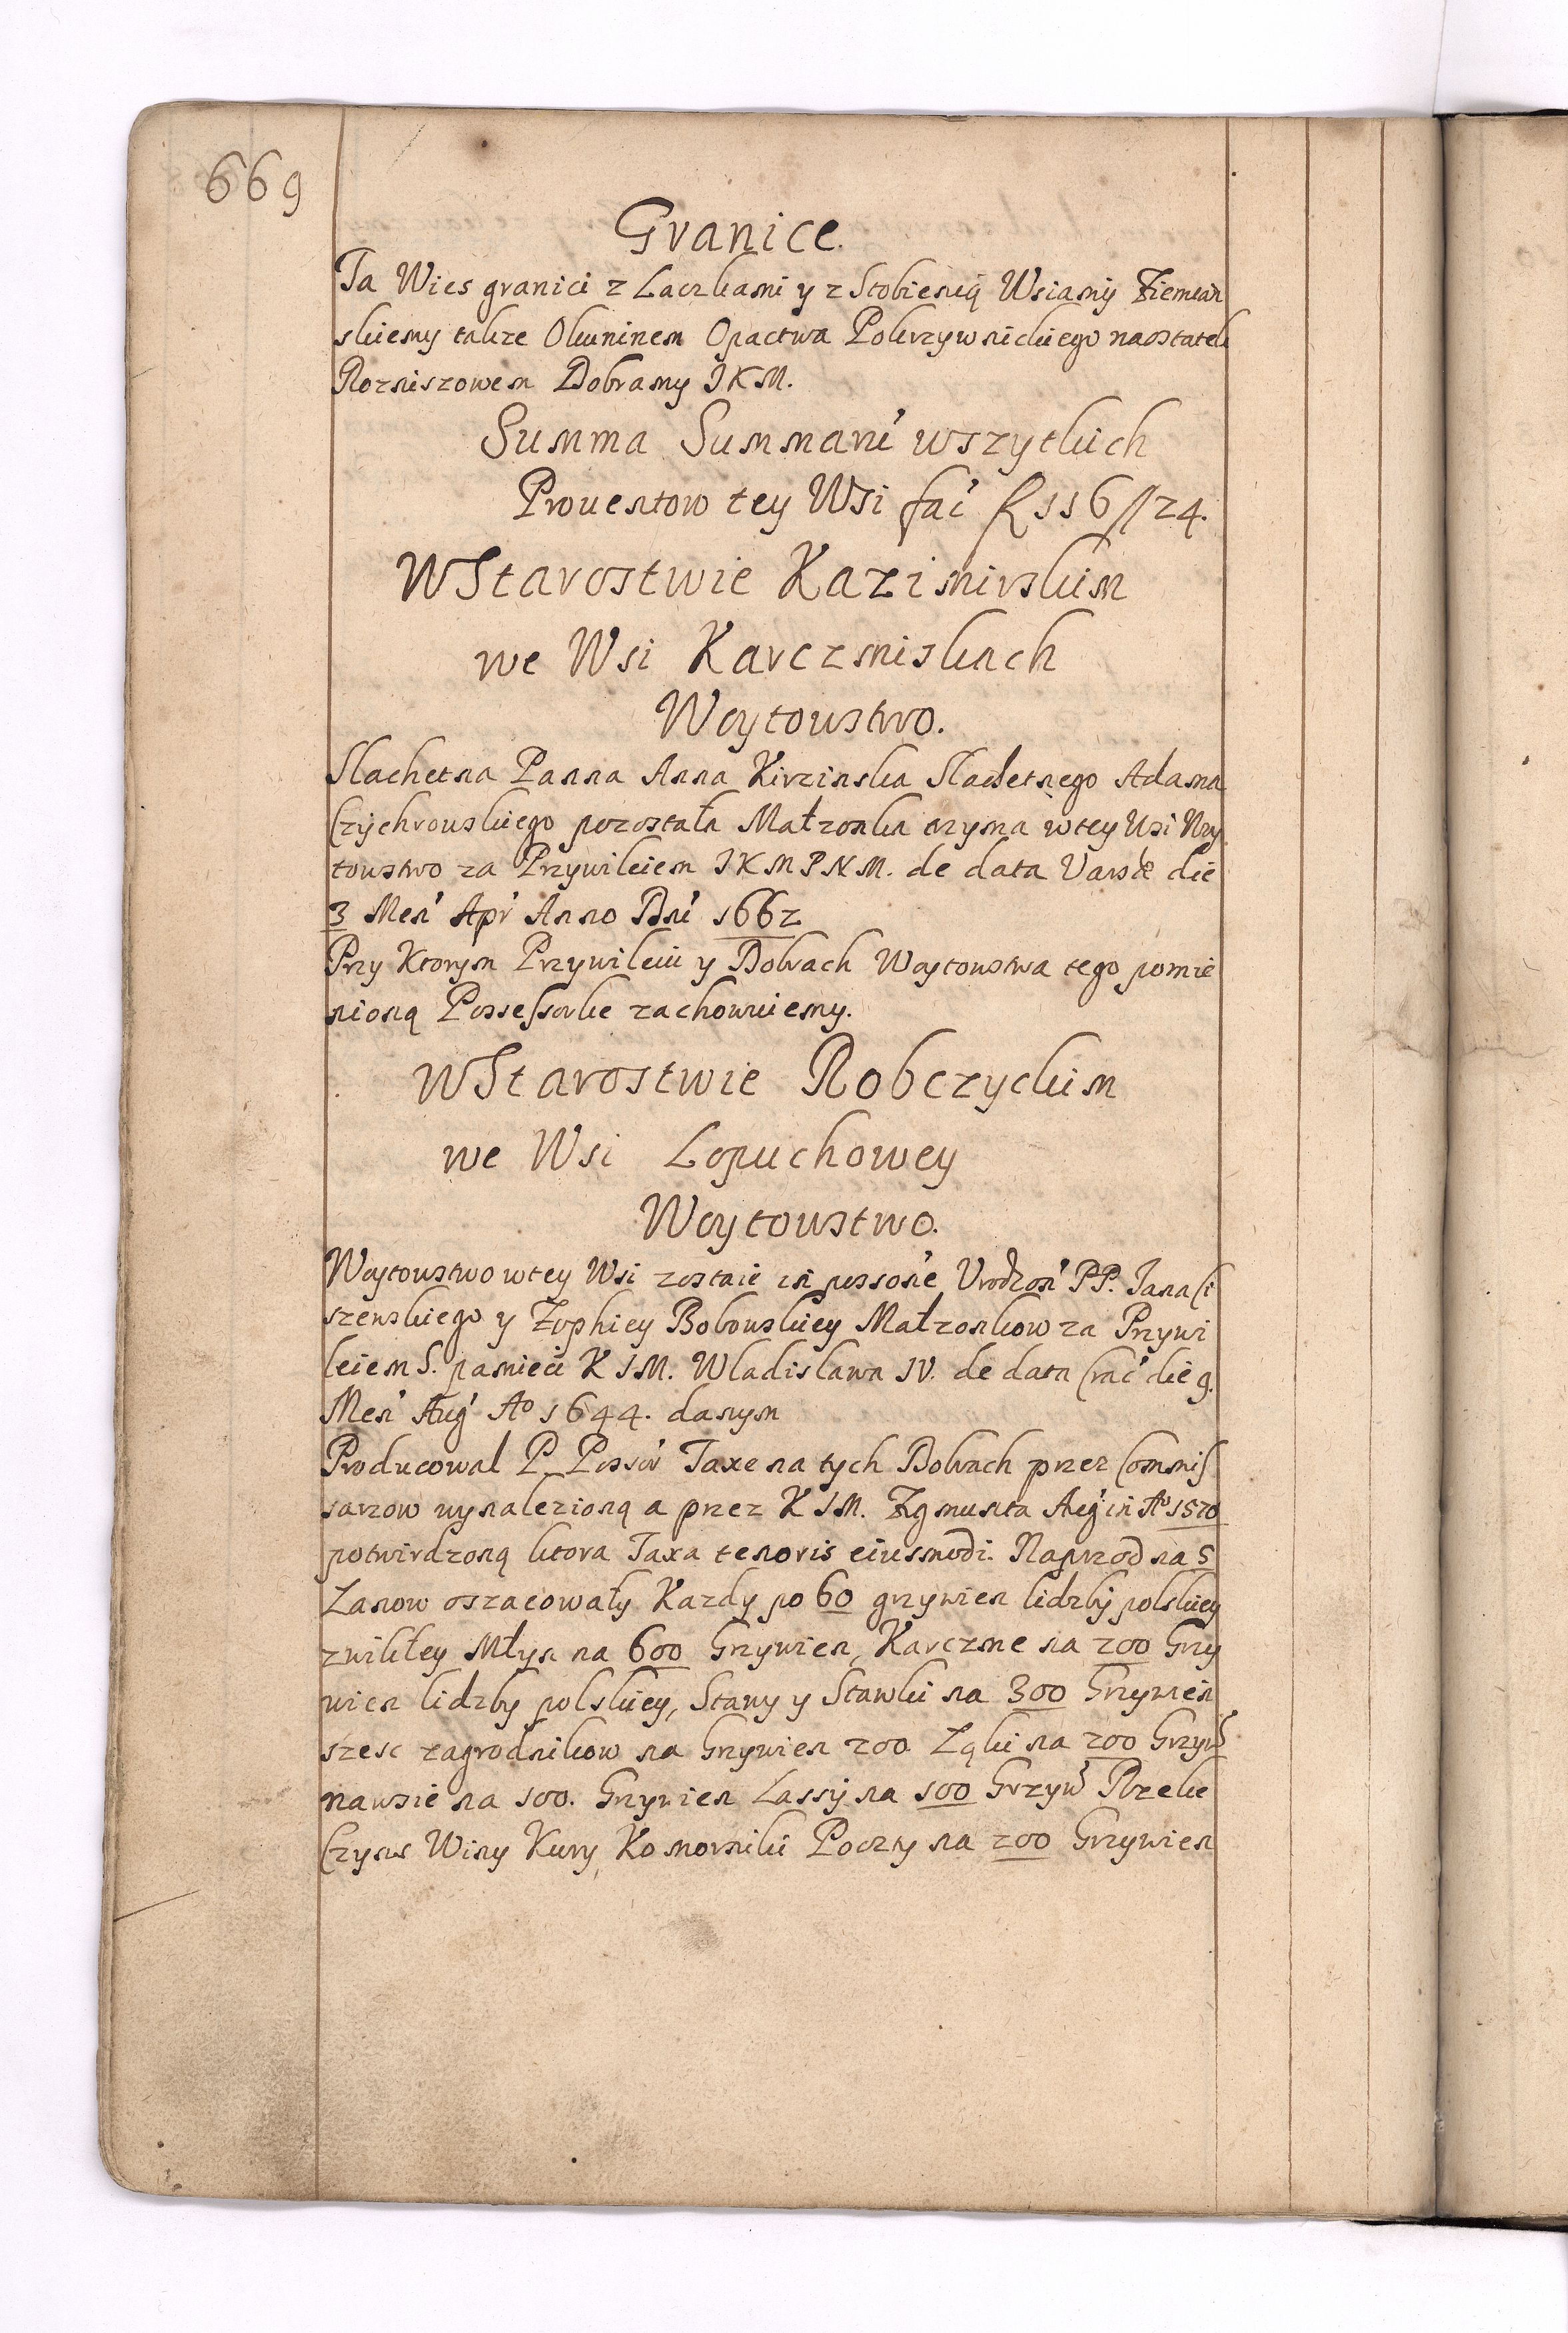 669
Granice.
Ta Wies granici z Laczkami y z Stobiecnią Wsiamy Ziemian
skiemy takze Okuninem Opactwa Pokrzywnickiego naostatek
Rozniszowem Dobramy JKM.
Summa Summarú wszytkich
Prouentow tey Wsi fać f 116 // 24.
WStarostwie Kazimirskim
we Wsi Karczmiskach
Woytoustwo.
Slachetna Panna Anna Kirzinska Slachetnego Adama
Czychrouskiego pozostała Małzonka trzyma wtey Wsi Woy
toustwo za Przywileiem JKMPNM. de data Varsæ die
3 Men' Apr' Anno Dni' 1662
Przy Ktorym Przywileiu y Dobrach Woytoustwa tego pomie
nioną Possessorke zachowuiemy.
WStarostwie Robczyckim
we Wsi Lopuchowey
Woytoustwo.
Woytoustwo wtey Wsi zostaie in possone Vrodzon' PP. Jana Ci
szewskiego y Zophiey Bobouskiey Małzonkow za Przywi
leiem S. pamieci K JM. Wladislawa IV. de data Crac' die 9.
Men' Aug' Ao 1644. danym
Producowal P. Possor' Taxe na tych Dobrach przez Commis
sarzow wynalezioną a przez K JM. Zygmunta Aug' in Ao 1570
potwirdzoną ktora Taxa tenoris eiusmodi. Naprzod na 5
Lanow oszacowały Kazdy po 60 grzywien lidzby polskiey
zwikłey Młyn na 600 Grzywien, Karczme na 200 Grzy
wien lidzby polskiey, Stawy y Stawki na 300 Grzywien
szesc zagrodnikow na Grzywien 200 Ląki na 200 Grzyw'
nawsie na 100. Grzywien Lassy na 100 Grzyw' Rzeke
Czyns Winy Kury, Komorniki Poczty na 200 Grzywien